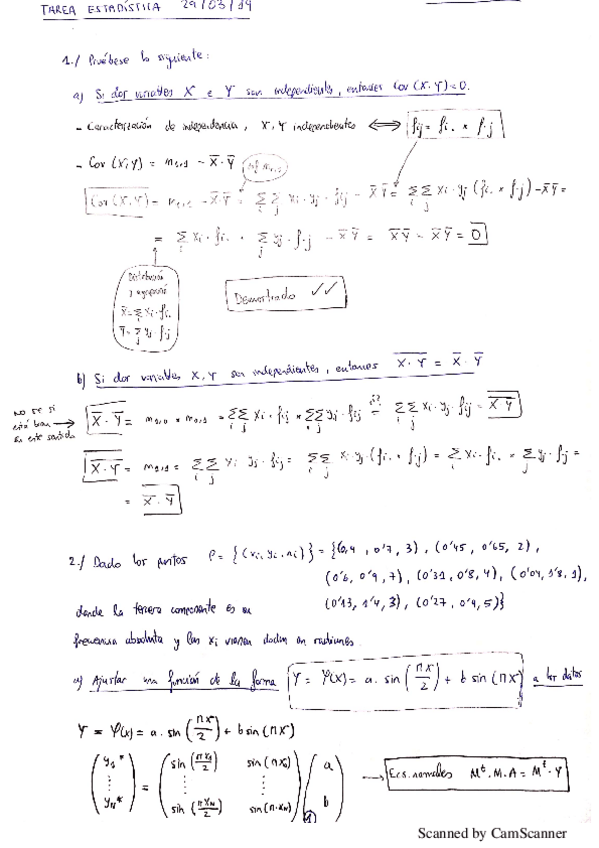 TAREA ESTADÍSTICA 29/03/19
1./ Pruébese lo siguiente:
a) Si dos variables X e Y son independientes, entonces Cov(X,Y)=0.
- Caracterización de independencia, X,Y independientes ⟺ fij = fi. × f.j
- Cov (X,Y) = m1,1 - X̄·Ȳ
Cov(X,Y) = m1,1 - X̄·Ȳ = Σi Σj xi·yj·fij - X̄Ȳ = Σi Σj xi·yj (fi. × f.j) - X̄Ȳ =
= Σi xi·fi. · Σj yj·f.j - X̄Ȳ = X̄Ȳ - X̄Ȳ = 0
Distribución
y agrupando
X̄ = Σi xi·fi.
Ȳ = Σj yj·f.j
Demostrado ✓✓
b) Si dos variables X, Y son independientes, entonces X·Y = X̄·Ȳ
NO SÉ SI
está bien
en este sentido
X̄·Ȳ = m1,0 × m0,1 = Σi Σj xi·fij × Σi Σj yj·fij = Σi Σj xi·yj·fij = X·Y
X·Y = m1,1 = Σi Σj xi yj·fij = Σi Σj xi·yj·(fi. × f.j) = Σi xi·fi. × Σj yj·f.j =
= X̄·Ȳ
2./ Dado los puntos P = {(xi, yi, ni)} = {(0,4, 0'7, 3), (0'45, 0'65, 2),
(0'6, 0'9, 7), (0'31, 0'8, 4), (0'04, 1'8, 1),
(0'13, 1'4, 3), (0'27, 0'4, 5)}
donde la tercera componente es su
frecuencia absoluta y las xi vienen dadas en radianes.
a) Ajustar una función de la forma Y = φ(x) = a·sin(πx/2) + b sin(πx) a los datos
Y = φ(x) = a·sin(πx/2) + b sin(πx)
(y1* ⋮ yN*) = (sin(πx1/2) sin(πx1) ⋮ ⋮ sin(πxN/2) sin(π·xN)) (a b) → Ecs. normales Mᵗ·M·A = Mᵗ·Y
Scanned by CamScanner